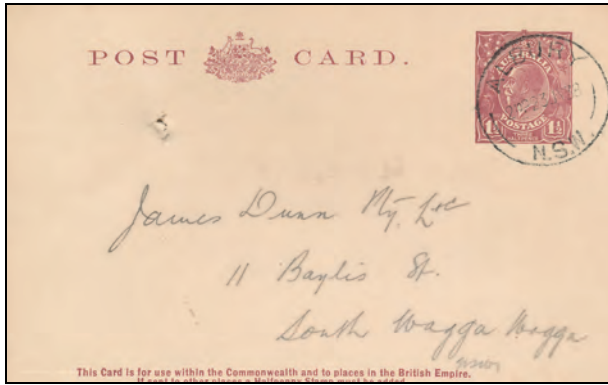 POST CARD.
ALBURY
AUSTRALIA
POSTAGE
N.S.W.
James Dunn Pty. Ltd
11 Baylis St.
South Wagga Wagga
NSW
This Card is for use within the Commonwealth and to places in the British Empire.
If sent to other places a Halfpenny Stamp must be added.